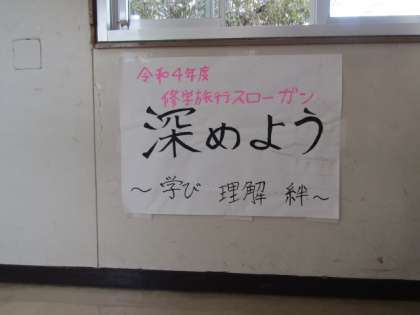 令和4年度
修学旅行スローガン
深めよう
～学び 理解 絆～